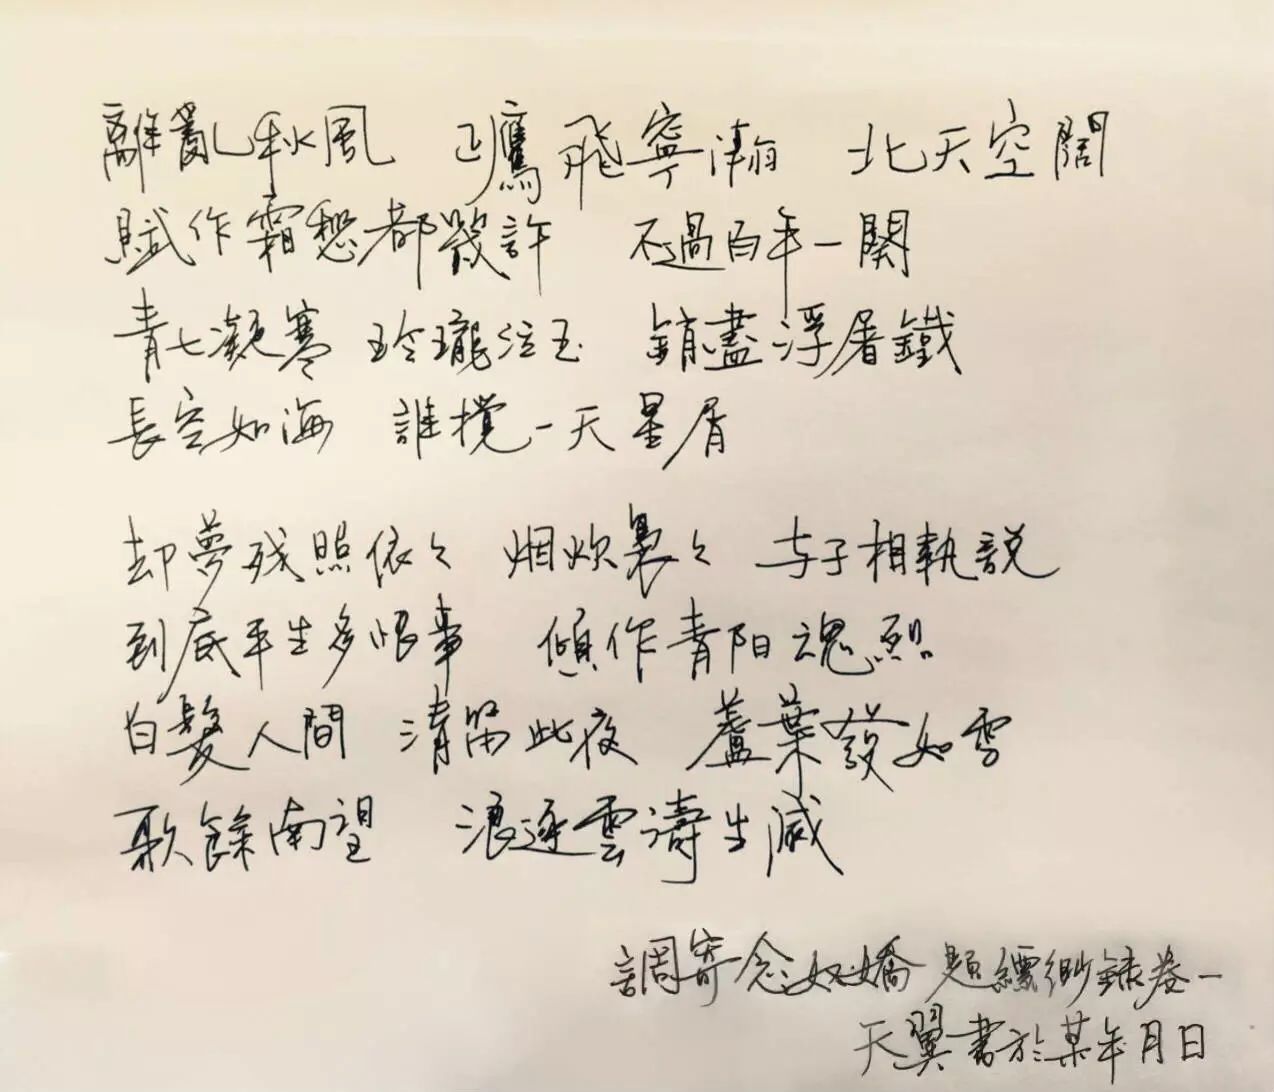 離亂秋風 正鷹飛寧瀚 北天空闊
賦作霜愁都幾許 不過百年一闋
青七凝寒 玲瓏注玉 銷盡浮屠鐵
長空如海 誰攪一天星屑
却夢残照依々 烟炊裊々 与子相執説
到底平生多恨事 傾作青阳魂烈
白髮人間 清笳此夜 蘆葉發如雪
歌餘南望 浪逐雲濤生滅
調寄念奴嬌 題縹緲錄卷一
天翼書於某年月日